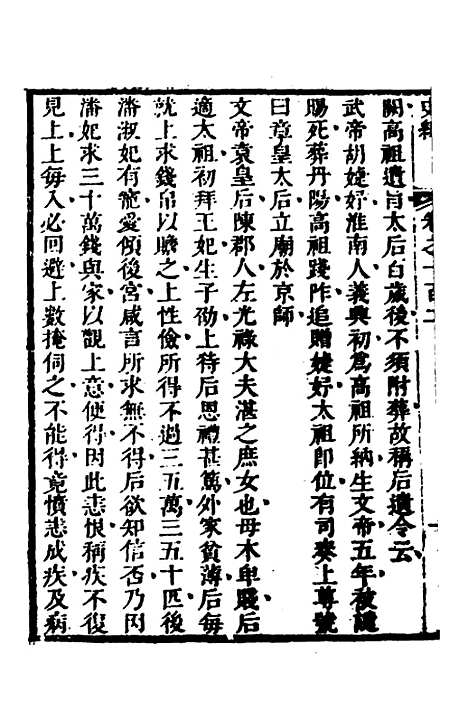 史緯 卷之一百二
闕高祖遺旨太后百歲後不須附葬故稱后遺令云
武帝胡婕妤淮南人義興初爲高祖所納生文帝五年被譴
賜死葬丹陽高祖踐阼追贈婕妤太祖卽位有司奏上尊號
曰章皇太后立廟於京師
文帝袁皇后陳郡人左光祿大夫湛之庶女也母本卑賤后
適太祖初拜王妃生子劭上待后恩禮甚篤外家貧薄后每
就上求錢帛以贍之上性儉所得不過三五萬三五十匹後
潘淑妃有寵愛傾後宮咸言所求無不得后欲知信否乃因
潘妃求三十萬錢與家以觀上意便得因此恚恨稱疾不復
見上上每入必回避上數掩伺之不能得竟憤恚成疾及病